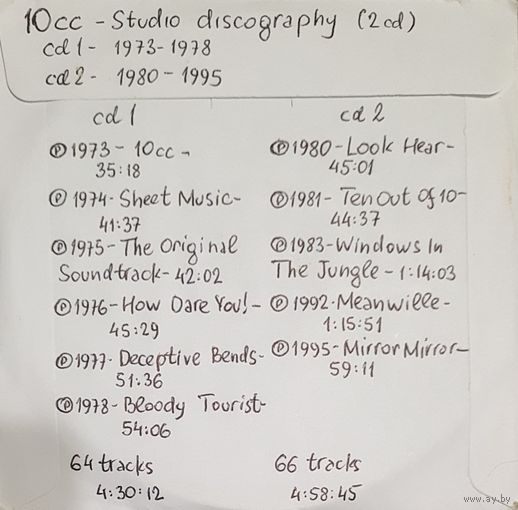 10cc - Studio discography (2cd)
cd1 - 1973-1978
cd2 - 1980-1995
cd1
℗1973 - 10cc -
35:18
℗ 1974- Sheet Music-
41:37
℗1975 - The Original
Soundtrack - 42:02
℗1976-How Dare You! -
45:29
℗1977- Deceptive Bends-
51:36
℗1978 - Bloody Tourist-
54:06
64 tracks
4:30:12
cd 2
℗1980-Look Hear-
45:01
℗1981- Ten Out Of 10-
44:37
℗1983-Windows In
The Jungle - 1:14:03
℗1992-Meanwille-
1:15:51
℗1995-Mirror Mirror-
59:11
66 tracks
4:58:45
www.ay.by